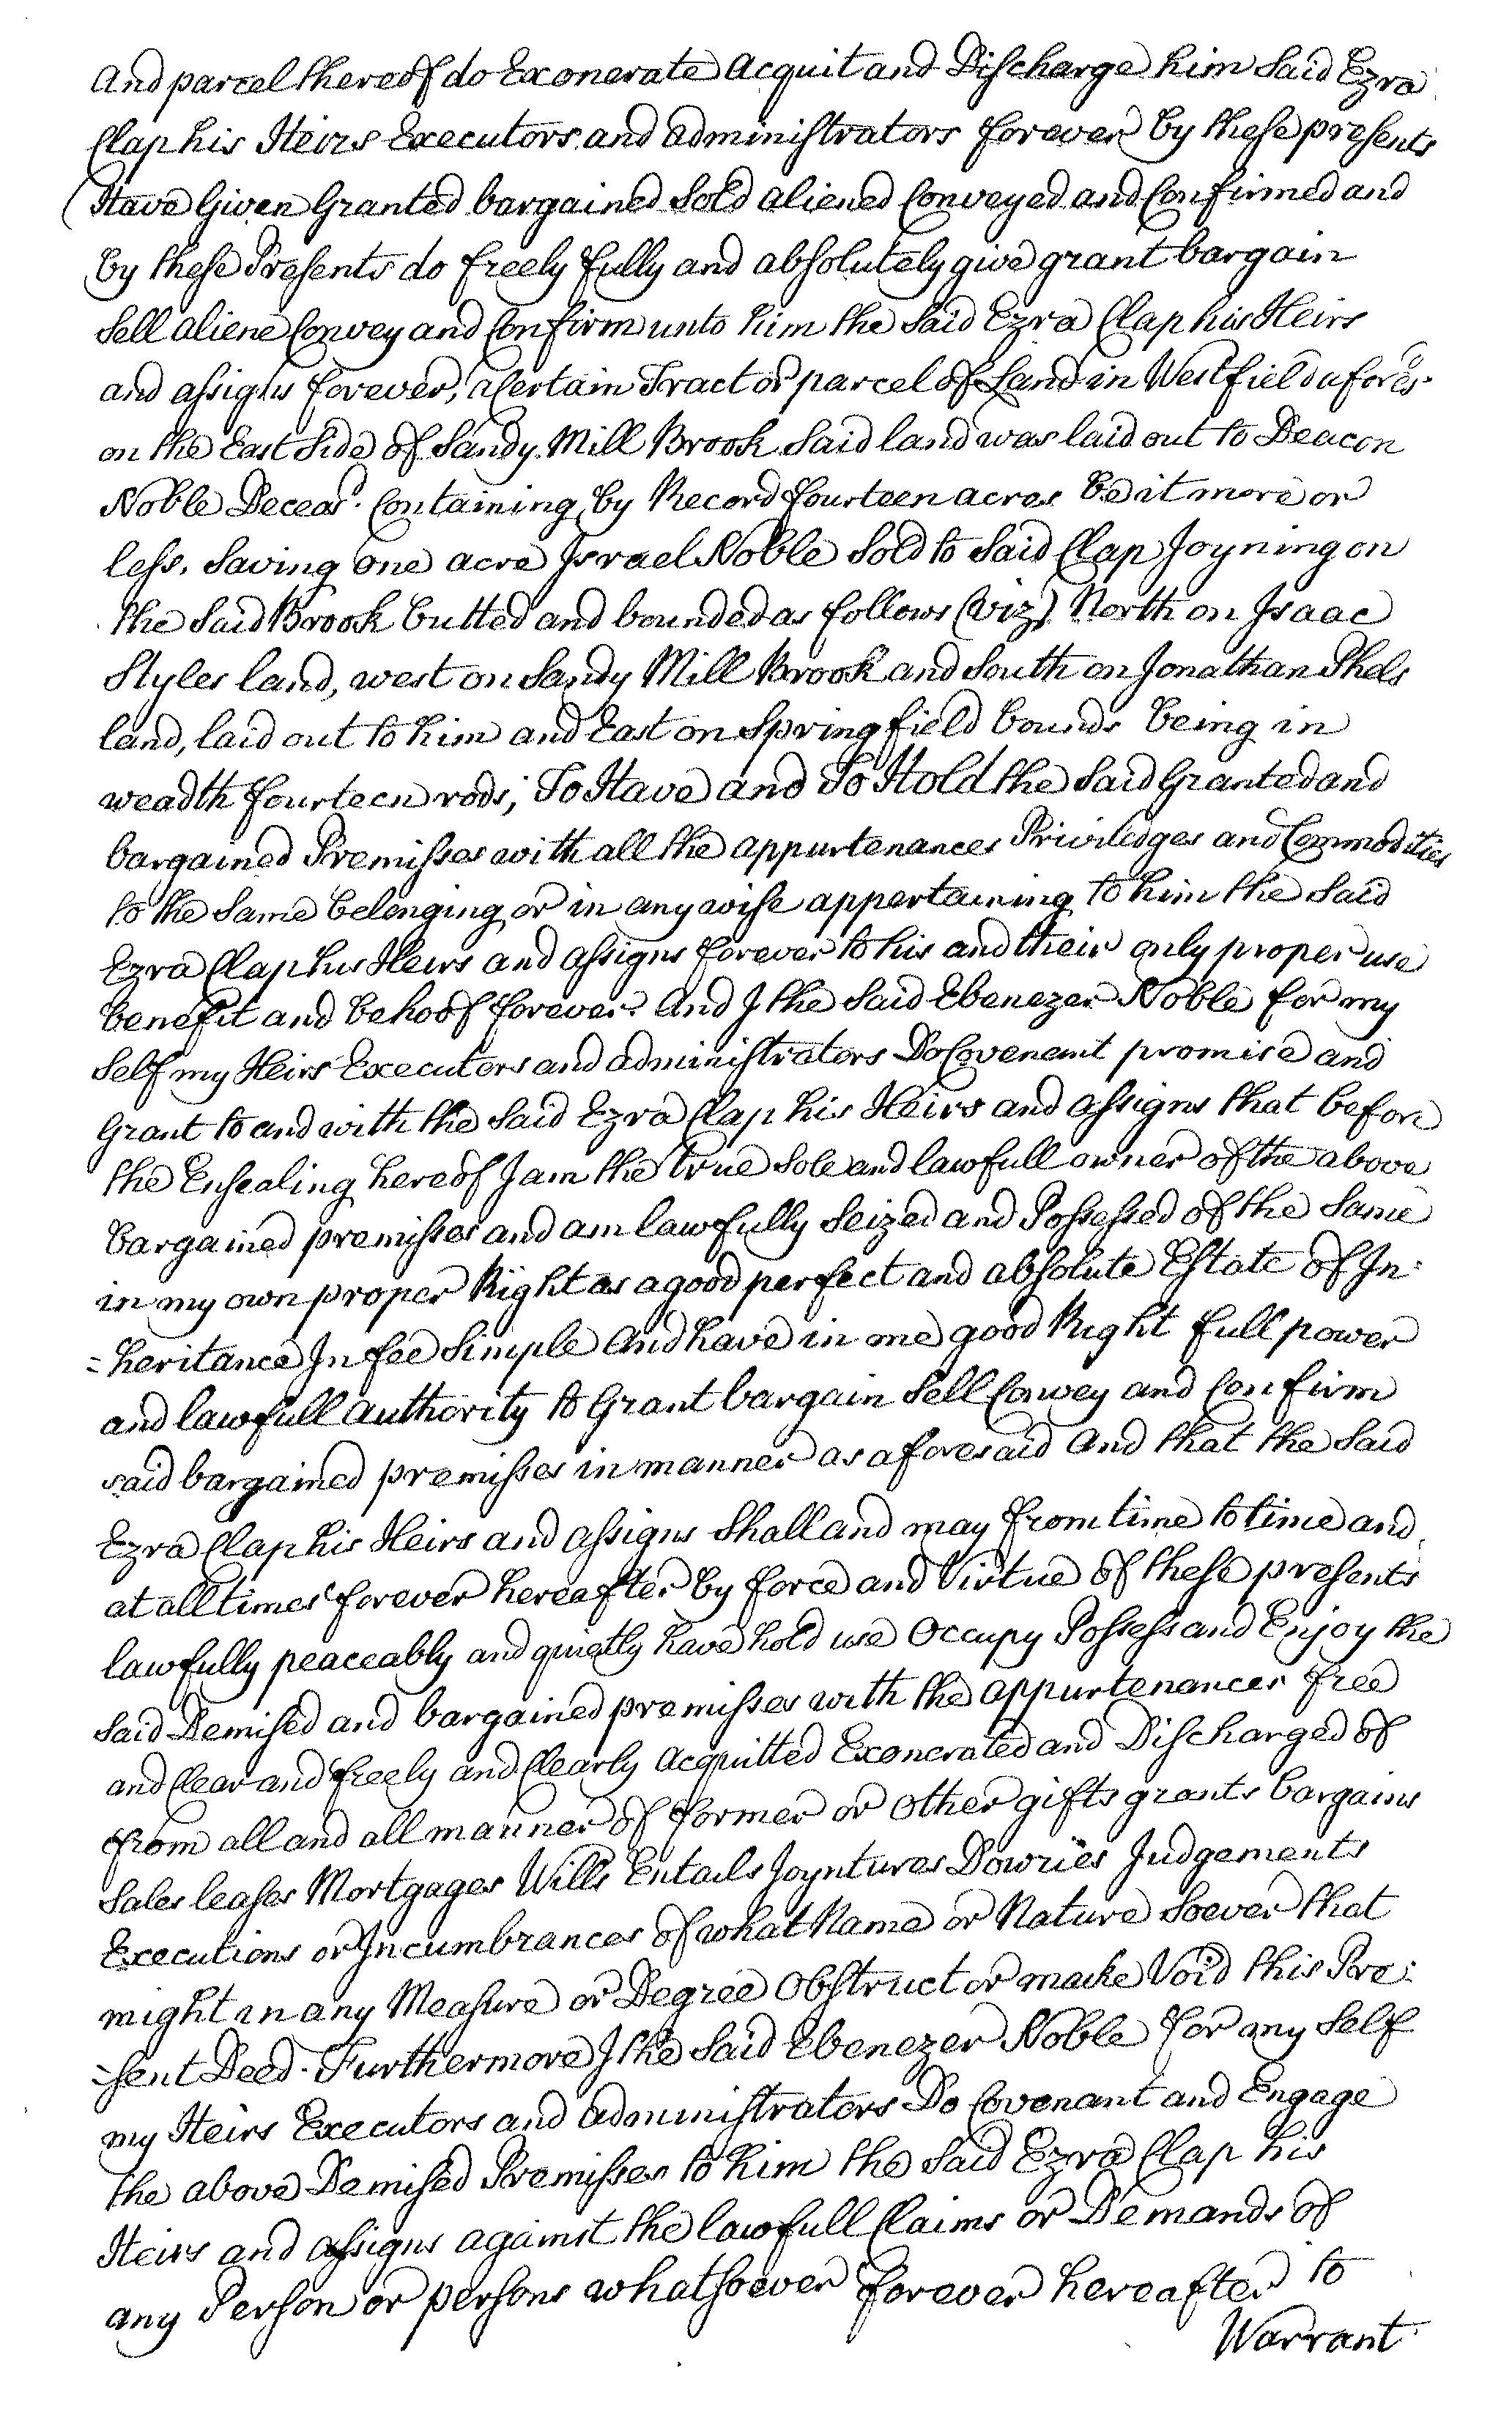 And parcel thereof do Exonerate Acquit and Discharge him Said Ezra
Clap his Heirs Executors and administrators forever by these presents
Have Given Granted bargained Sold aliened Conveyed and Confirmed and
by these Presents do freely fully and absolutely give grant bargain
Sell aliene Convey and Confirm unto him the Said Ezra Clap his Heirs
and assigns forever, a Certain Tract or parcel of Land in Westfield afores.d
on the East Side of Sandy Mill Brook Said land was laid out to Deacon
Noble Deceas.d Containing by Record fourteen acres be it more or
less, Saving one acre Israel Noble Sold to Said Clap Joyning on
the Said Brook butted and bounded as follows (viz) North on Isaac
Styles land, west on Sandy Mill Brook and South on Jonathan Phels
land, laid out to him and East on Springfield bounds being in
weadth fourteen rods; To Have and To Hold the Said Granted and
bargained Premisses with all the appurtenances Priviledges and Commodities
to the Same belonging or in any wise appertaining to him the Said
Ezra Clap his Heirs and assigns forever to his and their only proper use
benefit and behoof forever. And I the Said Ebenezer Noble for my
Self my Heirs Executors and administrators Do Covenant promise and
Grant to and with the Said Ezra Clap his Heirs and assigns that before
the Ensealing hereof I am the true Sole and lawfull owner of the above
bargained premisses and am lawfully Seized and Possessed of the Same
in my own proper Right as a good perfect and absolute Estate of In:
=heritance In fee Simple And have in me good Right full power
and lawfull authority to Grant bargain Sell Convey and Confirm
said bargained premisses in manner as aforesaid And that the Said
Ezra Clap his Heirs and assigns Shall and may from time to time and
at all times forever hereafter by force and Virtue of these presents
lawfully peaceably and quietly have hold use Occupy Possess and Enjoy the
Said Demised and bargained premisses with the appurtenances free
and Clear and freely and Clearly acquitted Exonerated and Discharged of
from all and all manner of former or other gifts grants bargains
Sales leases Mortgages Wills Entails Joyntures Dowries Judgements
Executions or Incumbrances of what Name or Nature Soever that
might in any Measure or Degree Obstruct or make Void this Pre:
=sent Deed. Furthermore I the Said Ebenezer Noble for my Self
my Heirs Executors and administrators Do Covenant and Engage
the above Demised Premisses to him the Said Ezra Clap his
Heirs and assigns against the lawfull Claims or Demands of
any Person or persons whatsoever forever hereafter to
Warrant